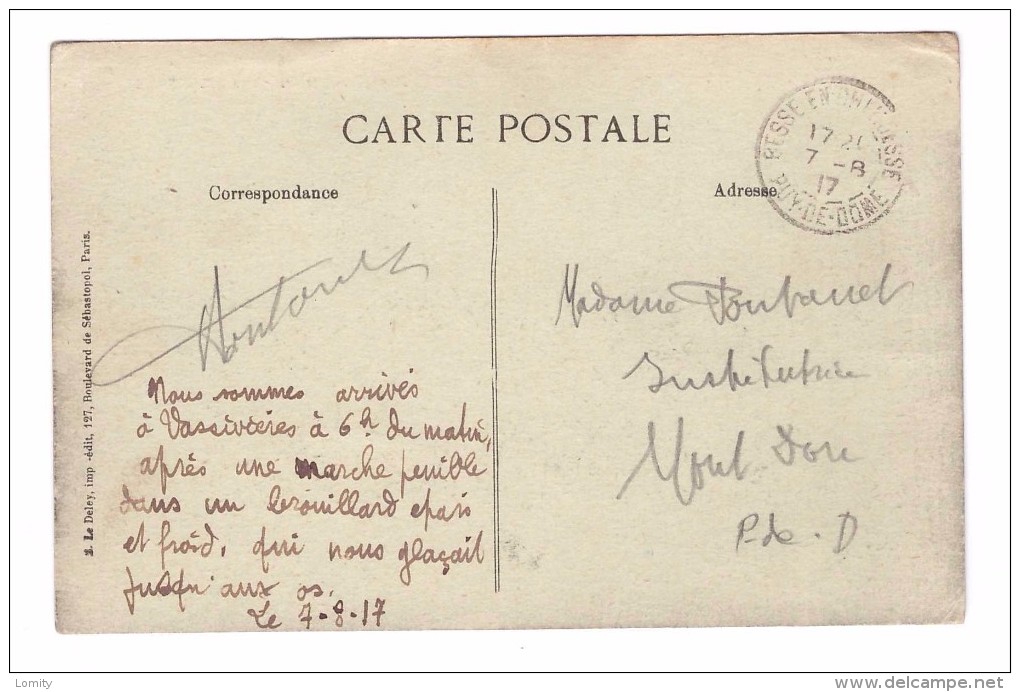 CARTE POSTALE
Correspondance
Adresse
BESSE-EN-CHANDESSE
17 2
7 -8
17
PUY-DE-DOME
E. Le Deley, imp.-édit, 127, Boulevard de Sébastopol, Paris.
Nous sommes arrivés
à Vassivières à 6h du matin,
après une marche penible
dans un brouillard epais
et froid, qui nous glaçait
jusqu'aux os.
Le 7-8-17
Madame
Institutrice
Mont Dore
P. de. D
Lomity
www.delcampe.net